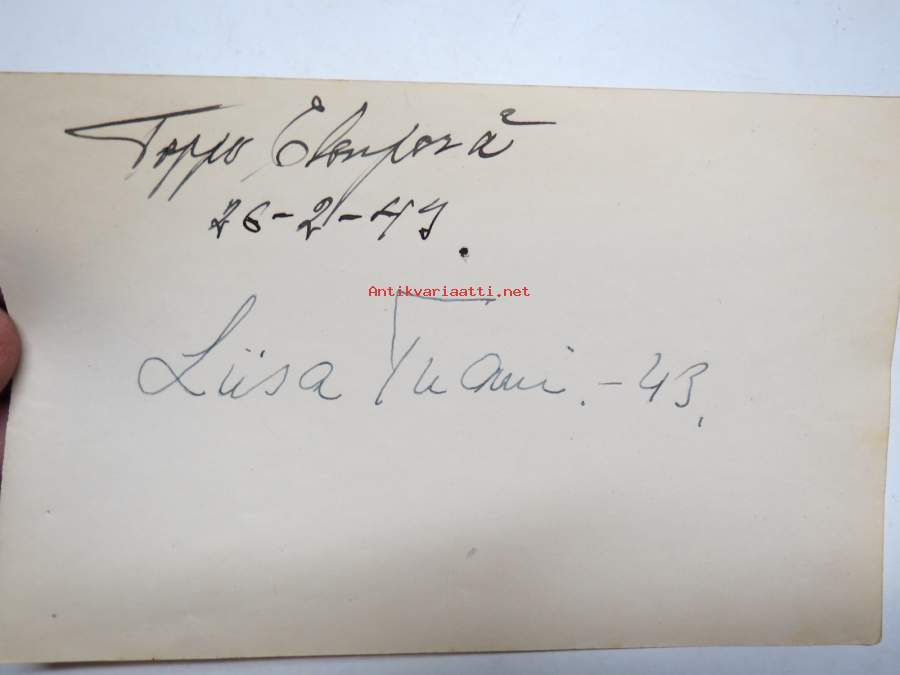 Toppo Elonperä
26-2-43.
Antikvariaatti.net
Liisa Tuomi. -43.